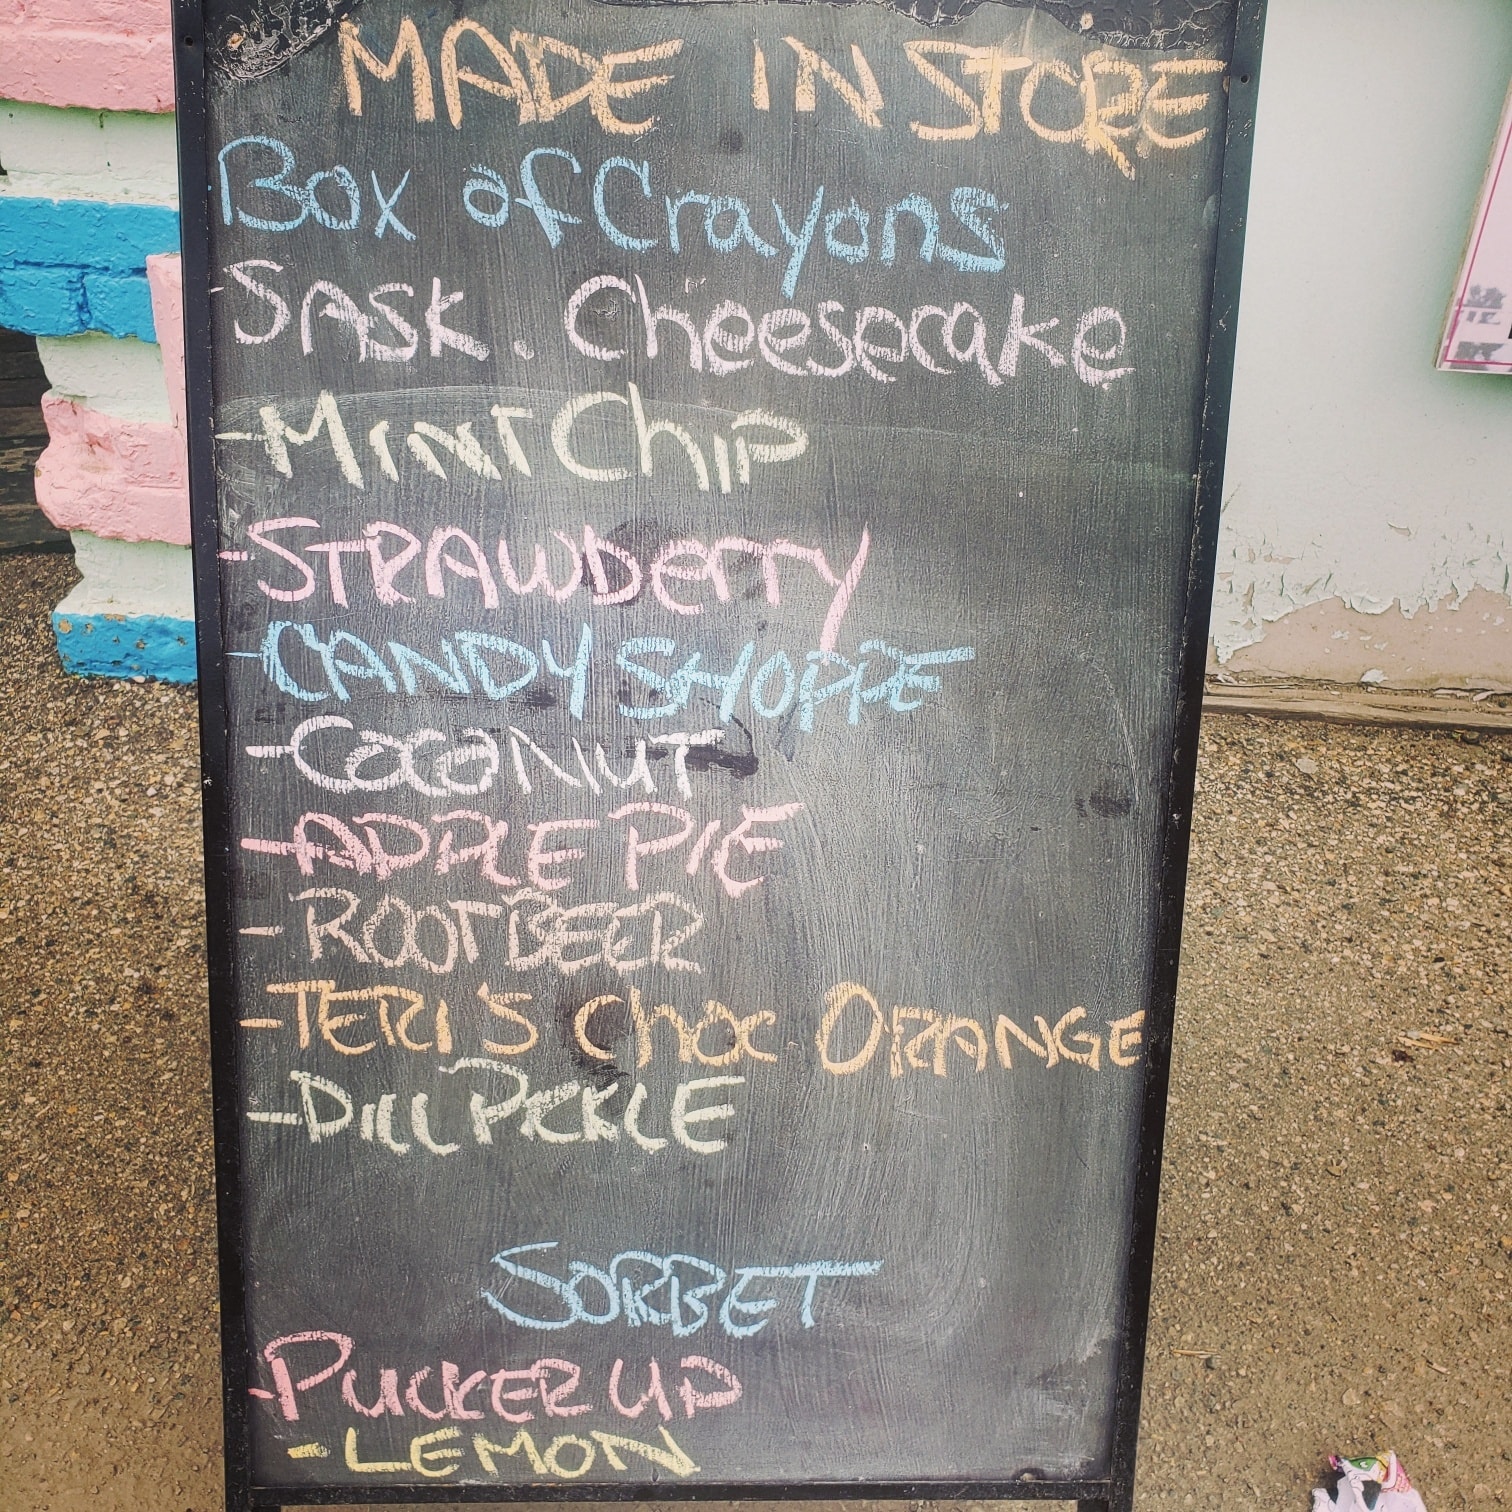 MADE IN STORE
Box of Crayons
-SASK. Cheesecake
-MINT ChIP
-STRAWberry
-CANDY SHOPPE
-CocoaNUT
-APPLE PIE
-ROOT BEER
-TERI'S Choc ORANGE
-DILL PICKLE
SORBET
-PUCKER UP
-LEMON